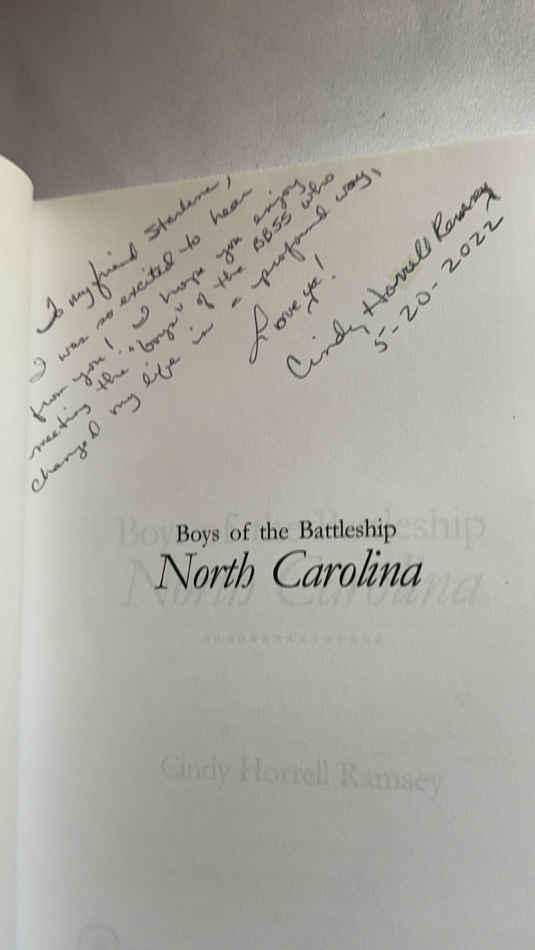 To my friend Starlene,
I was so excited to hear
from you! I hope you enjoy
meeting the "boys" of the BB55 who
changed my life in a profound way.
Love ya!
Cindy Horrell Ramsey
5-20-2022
Boys of the Battleship
North Carolina
Cindy Horrell Ramsey